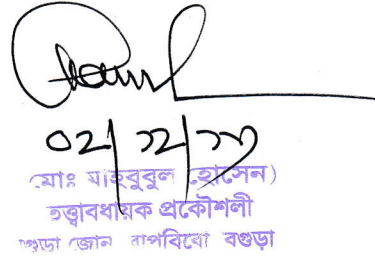 ০২/১২/১৩
মোঃ মাহবুবুল হোসেন)
তত্ত্বাবধায়ক প্রকৌশলী
বগুড়া জোন বাপবিবো বগুড়া